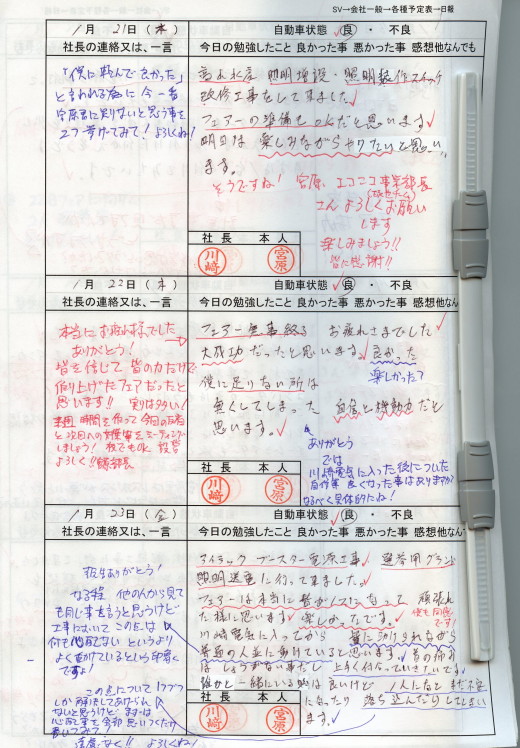 SV→会社一般→各種予定表→日報
1月 21日（木）
自動車状態 良 ・ 不良
社長の連絡又は、一言
今日の勉強したこと 良かった事 悪かった事 感想他なんでも
「僕に頼んで良かった」
と言われる為に今一番
宮原君に足りないと思う事を
2つ挙げてみて！よろしくね！
照明増設・照明 スイッチ
改修工事をして来ました。
フェアーの準備もOKだと思います
明日は楽しみながらやりたいと思い
ます。
そうですね！宮原 エコニコ事業部長
さんよろしくお願い
します
楽しみましょう!!
皆に感謝!!
社長 本人
川崎 宮原
1月 22日（木）
自動車状態 良 ・ 不良
社長の連絡又は、一言
今日の勉強したこと 良かった事 悪かった事 感想他なん
本当にお疲れ様でした
ありがとう！
皆を信じて皆の力だけで
作り上げたフェアだったと
思います!! 実りは多い！
時間を作って今回の反省
と次回への をミーティング
しましょう！
よろしく!!
フェアー無事終る お疲れさまでした
大成功だったと思います。良かった
楽しかった？
僕に足りない所は
無くしてしまった 自信と行動力だと
思います。
ありがとう
では
川崎電気に入った後についた
自信 良くなった事はありますか？
なるべく具体的にね！
社長 本人
川崎 宮原
1月 23日（金）
自動車状態 良 ・ 不良
社長の連絡又は、一言
今日の勉強したこと 良かった事 悪かった事 感想他なん
ありがとう！
なる程 他の人から見て
も同じ事を言うと思うけど
工事において この点は
何も心配ない というより
よく気付けているという印象
ですよ！
この点について1つ1つ
しか解決してあげられ
ないと思うけど まずは
心配事を全部思いつくだけ
書いてみて！
遠慮なく!! よろしくね！
アイラック ブースター電源工事 選挙用グランド
照明 に行って来ました。
フェアーは本当に皆が1つになって 頑張れ
た様に思います 楽しかったです。
僕も同感
です！
川崎電気に入ってから 皆に助けられながら
普通の人並に動けていると思います 首の痛み
はしょうがない事だし 上手く付合っていきたいです。
誰かと一緒にいる時は良いけど 1人になると まだ不安
になったり 落ち込んだりしてしまい
ます。
社長 本人
川崎 宮原